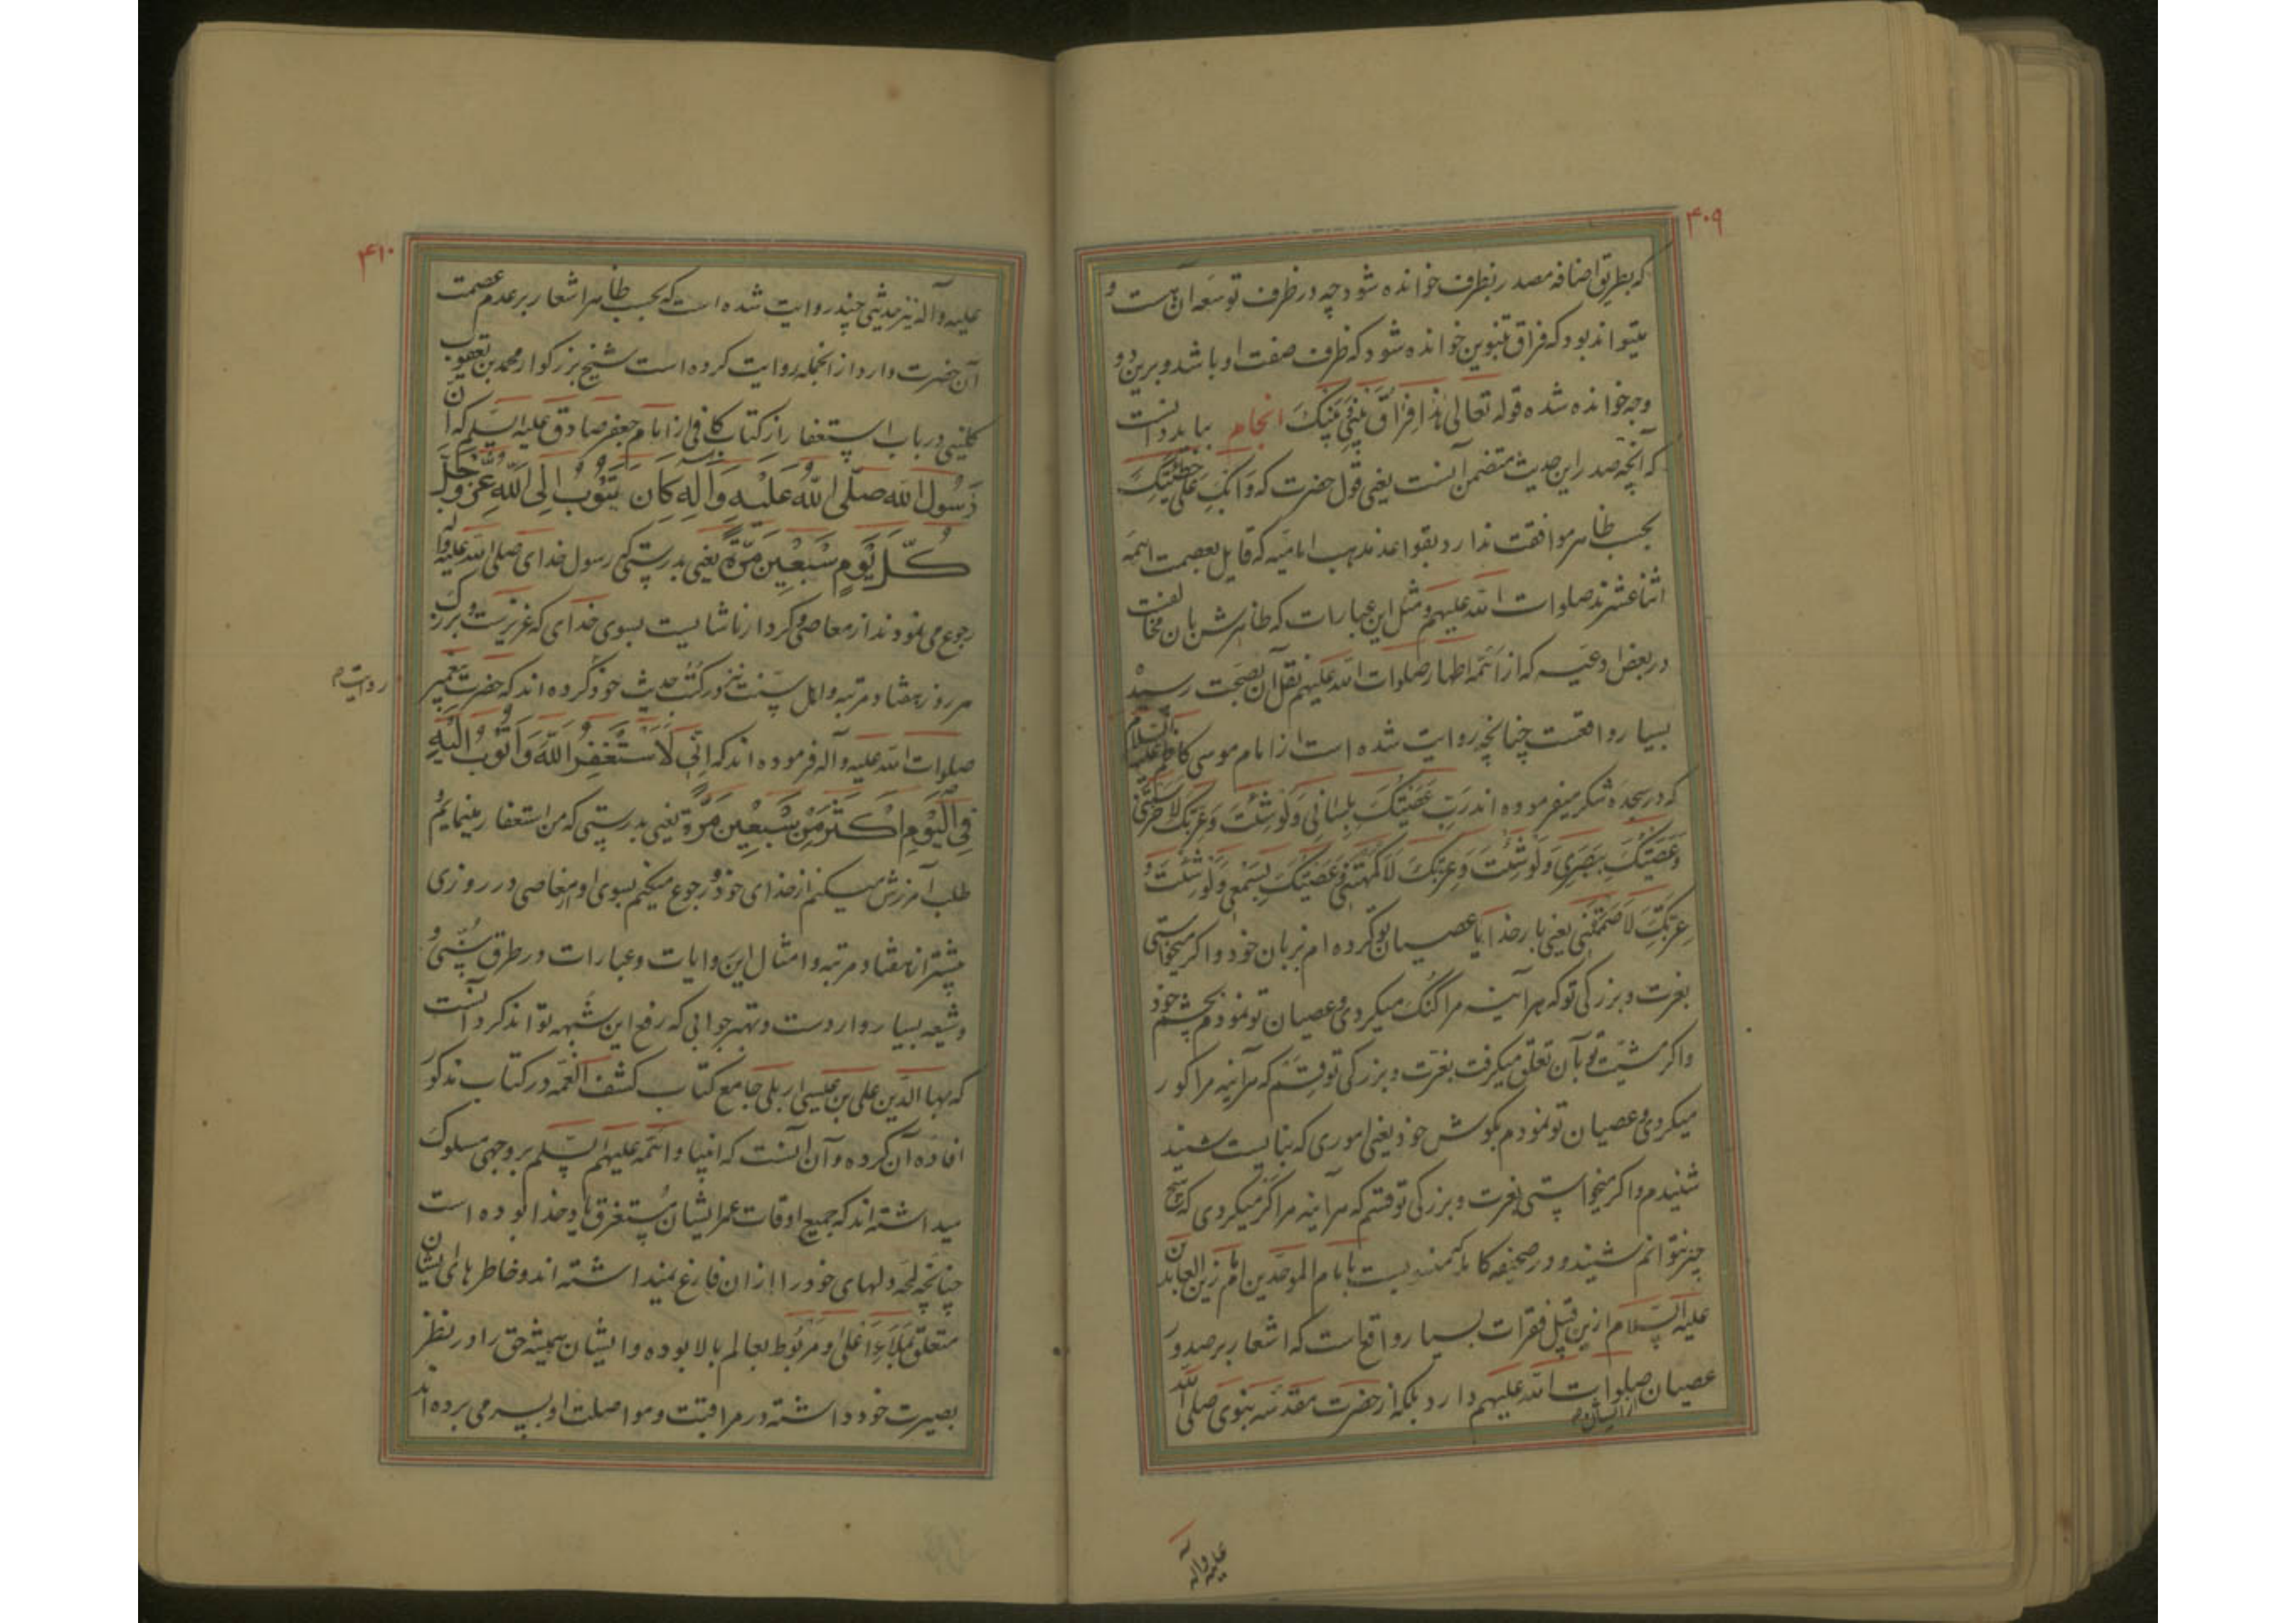 ۴۰۹
که بطریق اضافه مصدر بظرف خوانده شود چه در ظرف توسعه آن هست و
میتواند بود که فراق بتنوین خوانده شود که ظرف صفت او باشد و برین دو
وجه خوانده شده قوله تعالی هذا فِرَاقُ بَيْنِي وَبَيْنِكَ انجام بباید دانست
که آنچه صدر این حدیث متضمن آنست یعنی قول حضرت که وَابْكِ عَلَى خَطِيئَتِكَ
بحسب ظاهر موافقت ندارد بقواعد مذهب امامیه که قایل بعصمت ائمه
اثنا عشرند صلوات الله علیهم و مثل این عبارات که ظاهرش بان مخالفت
در بعض ادعیه که از ائمه اطهار صلوات الله علیهم نقل آن بصحت رسیده
بسیار واقعست چنانچه روایت شده است از امام موسی کاظم علیه السلام
که در سجده شکر میفرموده اند رَبِّ عَصَيْتُكَ بِلِسَانِي وَلَوْ شِئْتَ وَعِزَّتِكَ لَاَخْرَسْتَنِي
وَعَصَيْتُكَ بِبَصَرِي وَلَوْ شِئْتَ وَعِزَّتِكَ لَاَكْمَهْتَنِي وَعَصَيْتُكَ بِسَمْعِي وَلَوْ شِئْتَ وَ
عِزَّتِكَ لَاَصْمَمْتَنِي یعنی بار خدایا عصیان تو کرده ام بزبان خود و اگر میخواستی
بعزت و بزرگی تو که هر آینه مرا گنگ میکردی و عصیان تو نمودم بچشم خود
واکر مشیت تو بآن تعلق میکرفت بعزت و بزرکی تو قسم که هر آینه مرا کور
میکردی و عصیان تو نمودم بکوش خود یعنی اموری که نبایست شنید
شنیدم و اکر میخواستی بعزت و بزرکی تو قسم که هر آینه مرا کر میکردی که هیچ
چیز نتوانم شنید و در صحیفه کامله که منسوبست بامام الموحدین امام زین العابدین
علیه السلام ازین قبیل فقرات بسیار واقع است که اشعار بر صدور
عصیان از ایشان صلوات الله علیهم دارد بلکه از حضرت مقدسه نبوی صلی الله
علیه وآله
۴۱۰
علیه وآله نیز حدیثی چند روایت شده است که بحسب ظاهر اشعار بر عدم عصمت
آن حضرت دارد از انجمله روایت کرده است شیخ بزرکوار محمد بن یعقوب
کلینی در باب استغفار از کتاب کافی از امام جعفر صادق علیه السلم که اَنَّ
رَسُولَ اللهِ صَلَّى اللهُ عَلَيْهِ وَآلِهِ كَانَ يَتُوبُ اِلَى اللهِ عَزَّ وَجَلَّ
كُلَّ يَوْمٍ سَبْعِينَ مَرَّةً یعنی بدرستی که رسول خدای صلی الله علیه وآله
رجوع می نمودند از معاصی و کردار ناشایست بسوی خدای که عزیزست و بزرک
هر روز هفتاد مرتبه و اهل سنت نیز در کتب حدیث خود ذکر کرده اند که حضرت پیغمبر
صلوات الله علیه وآله فرموده اند که اِنِّي لَاَسْتَغْفِرُ اللهَ وَاَتُوبُ اِلَيْهِ
فِي الْيَوْمِ اَكْثَرَ مِنْ سَبْعِينَ مَرَّةً یعنی بدرستی که من استغفار مینمایم و
طلب آمرزش میکنم از خدای خود و رجوع میکنم بسوی او از معاصی در روزی
بیشتر از هفتاد مرتبه و امثال این روایات و عبارات در طرق سنی و
و شیعه بسیار واردست و بهتر جوابی که رفع این شبهه تواند کرد آنست
که بهاء الدین علی بن عیسی اربلی جامع کتاب کشف الغمه در کتاب مذکور
افاده آن کرده و آن آنست که انبیا و ائمه علیهم السلم بر وجهی سلوک
میداشته اند که جمیع اوقات عمر ایشان مستغرق یاد خدا بوده است
چنانچه لمحه دلهای خود را از ان فارغ نمیداشته اند و خاطرهای ایشان
متعلق بملاء اعلی و مربوط بعالم بالا بوده و ایشان همیشه حق را در نظر
بصیرت خود داشته در مراقبت و مواصلت او بسر می برده اند